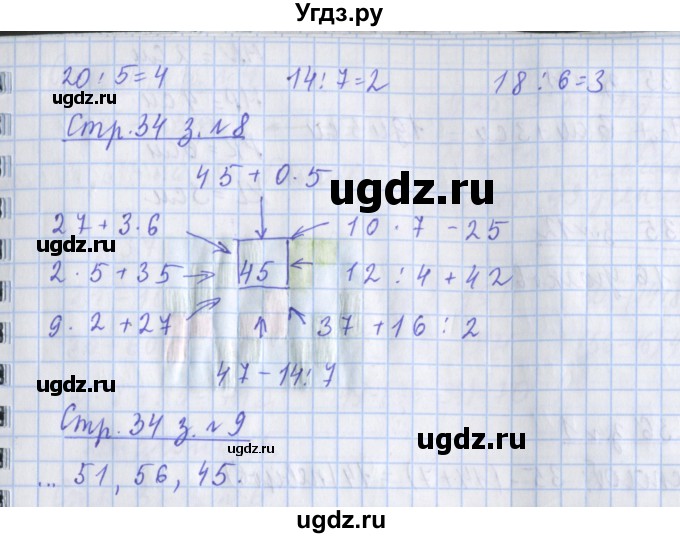 Угдз.ру
20 : 5 = 4 14 : 7 = 2 18 : 6 = 3
ugdz.ru ugdz.ru
Стр. 34 з. №8
45 + 0 · 5
ugdz.ru
27 + 3 · 6 10 · 7 - 25
ugdz.ru
2 · 5 + 35 45 12 : 4 + 42
9 · 2 + 27 37 + 16 : 2
47 - 14 : 7
ugdz.ru ugdz.ru
Стр. 34 з. №9
... 51, 56, 45.
ugdz.ru
ugdz.ru